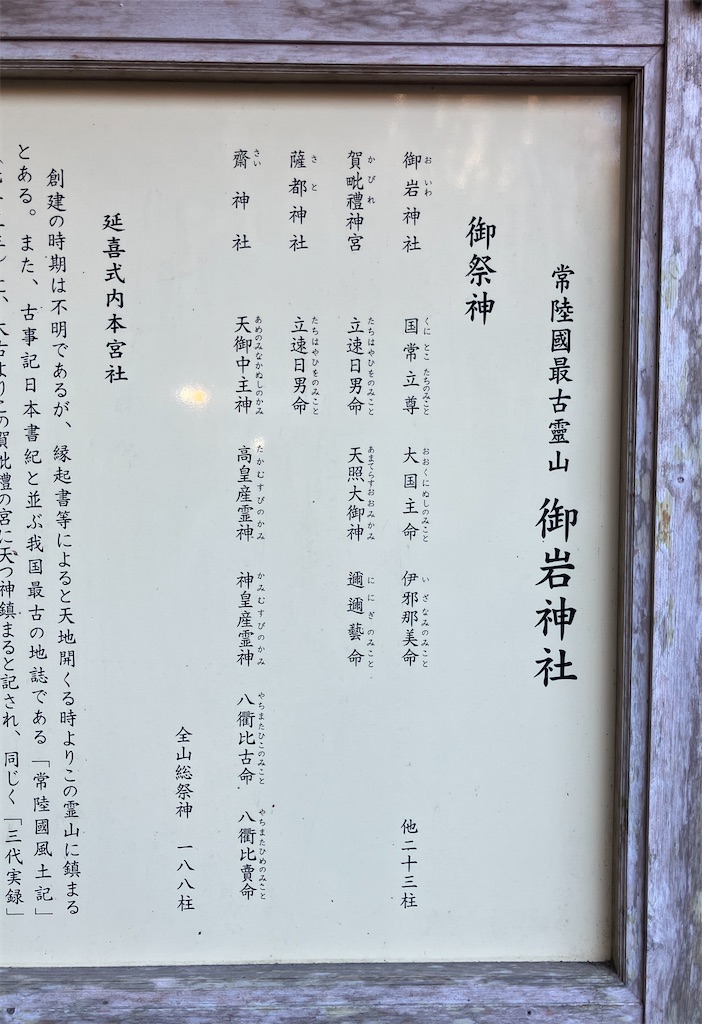 常陸國最古靈山 御岩神社
御祭神
御岩神社 国常立尊 大国主命 伊邪那美命 他二十三柱
おいわ くにとこたちのみこと おおくにぬしのみこと いざなみのみこと
賀毗禮神宮 立速日男命 天照大御神 邇邇藝命
かびれ たちはやひをのみこと あまてらすおおみかみ ににぎのみこと
薩都神社 立速日男命
さと たちはやひをのみこと
齋神社 天御中主神 高皇産霊神 神皇産霊神 八衢比古命 八衢比賣命
さい あめのみなかぬしのかみ たかむすびのかみ かみむすびのかみ やちまたひこのみこと やちまたひめのみこと
全山総祭神 一八八柱
延喜式内本宮社
創建の時期は不明であるが、縁起書等によると天地開くる時よりこの霊山に鎮まる
とある。また、古事記日本書紀と並ぶ我国最古の地誌である「常陸國風土記」
に、大古よりこの賀毗禮の宮に天つ神鎮まると記され、同じく「三代実録」